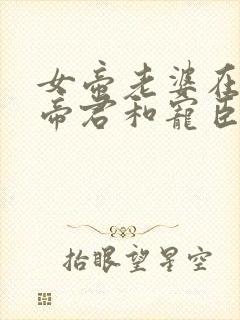 女帝老婆在
帝君和寵臣
抬眼望星空